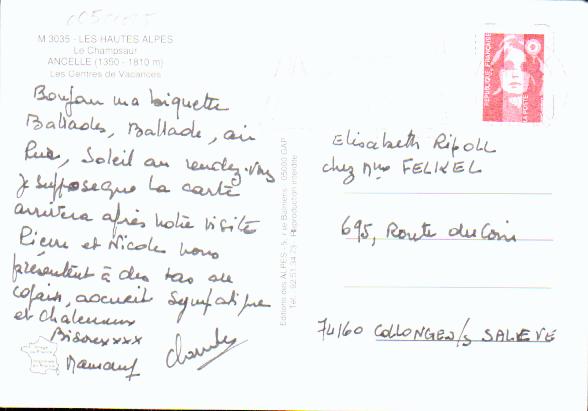 M 3035 - LES HAUTES ALPES
Le Champsaur
ANCELLE (1350 - 1810 m)
Les Centres de Vacances
Bonjour ma biquette
Ballades, Ballade, air
Pur, Soleil au rendez-vous
Je suppose que la carte
arrivera après notre visite
Pierre et Nicole nous
présentent à des tas de
copains, accueil sympatique
et chaleureux
Bisous xxxx
Editions des ALPES - 5, rue Baymens - 05000 GAP
Tél. 92.51.34.23 - Reproduction interdite
REPUBLIQUE FRANÇAISE
LA POSTE
Elisabeth Ripoll
chez Mme FELIKEL
695, Route du Coin
74160 COLLONGES/s SALEVE